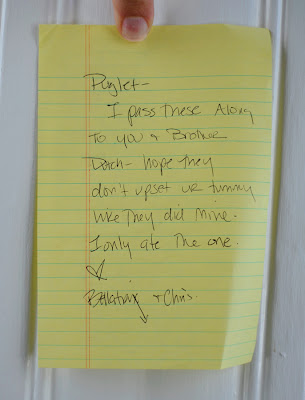 Puglet-
I pass these Along
to you & Brother
Dutch- hope they
don't upset ur tummy
like they did mine.
I only ate the one.
Bellatrix & Chris.